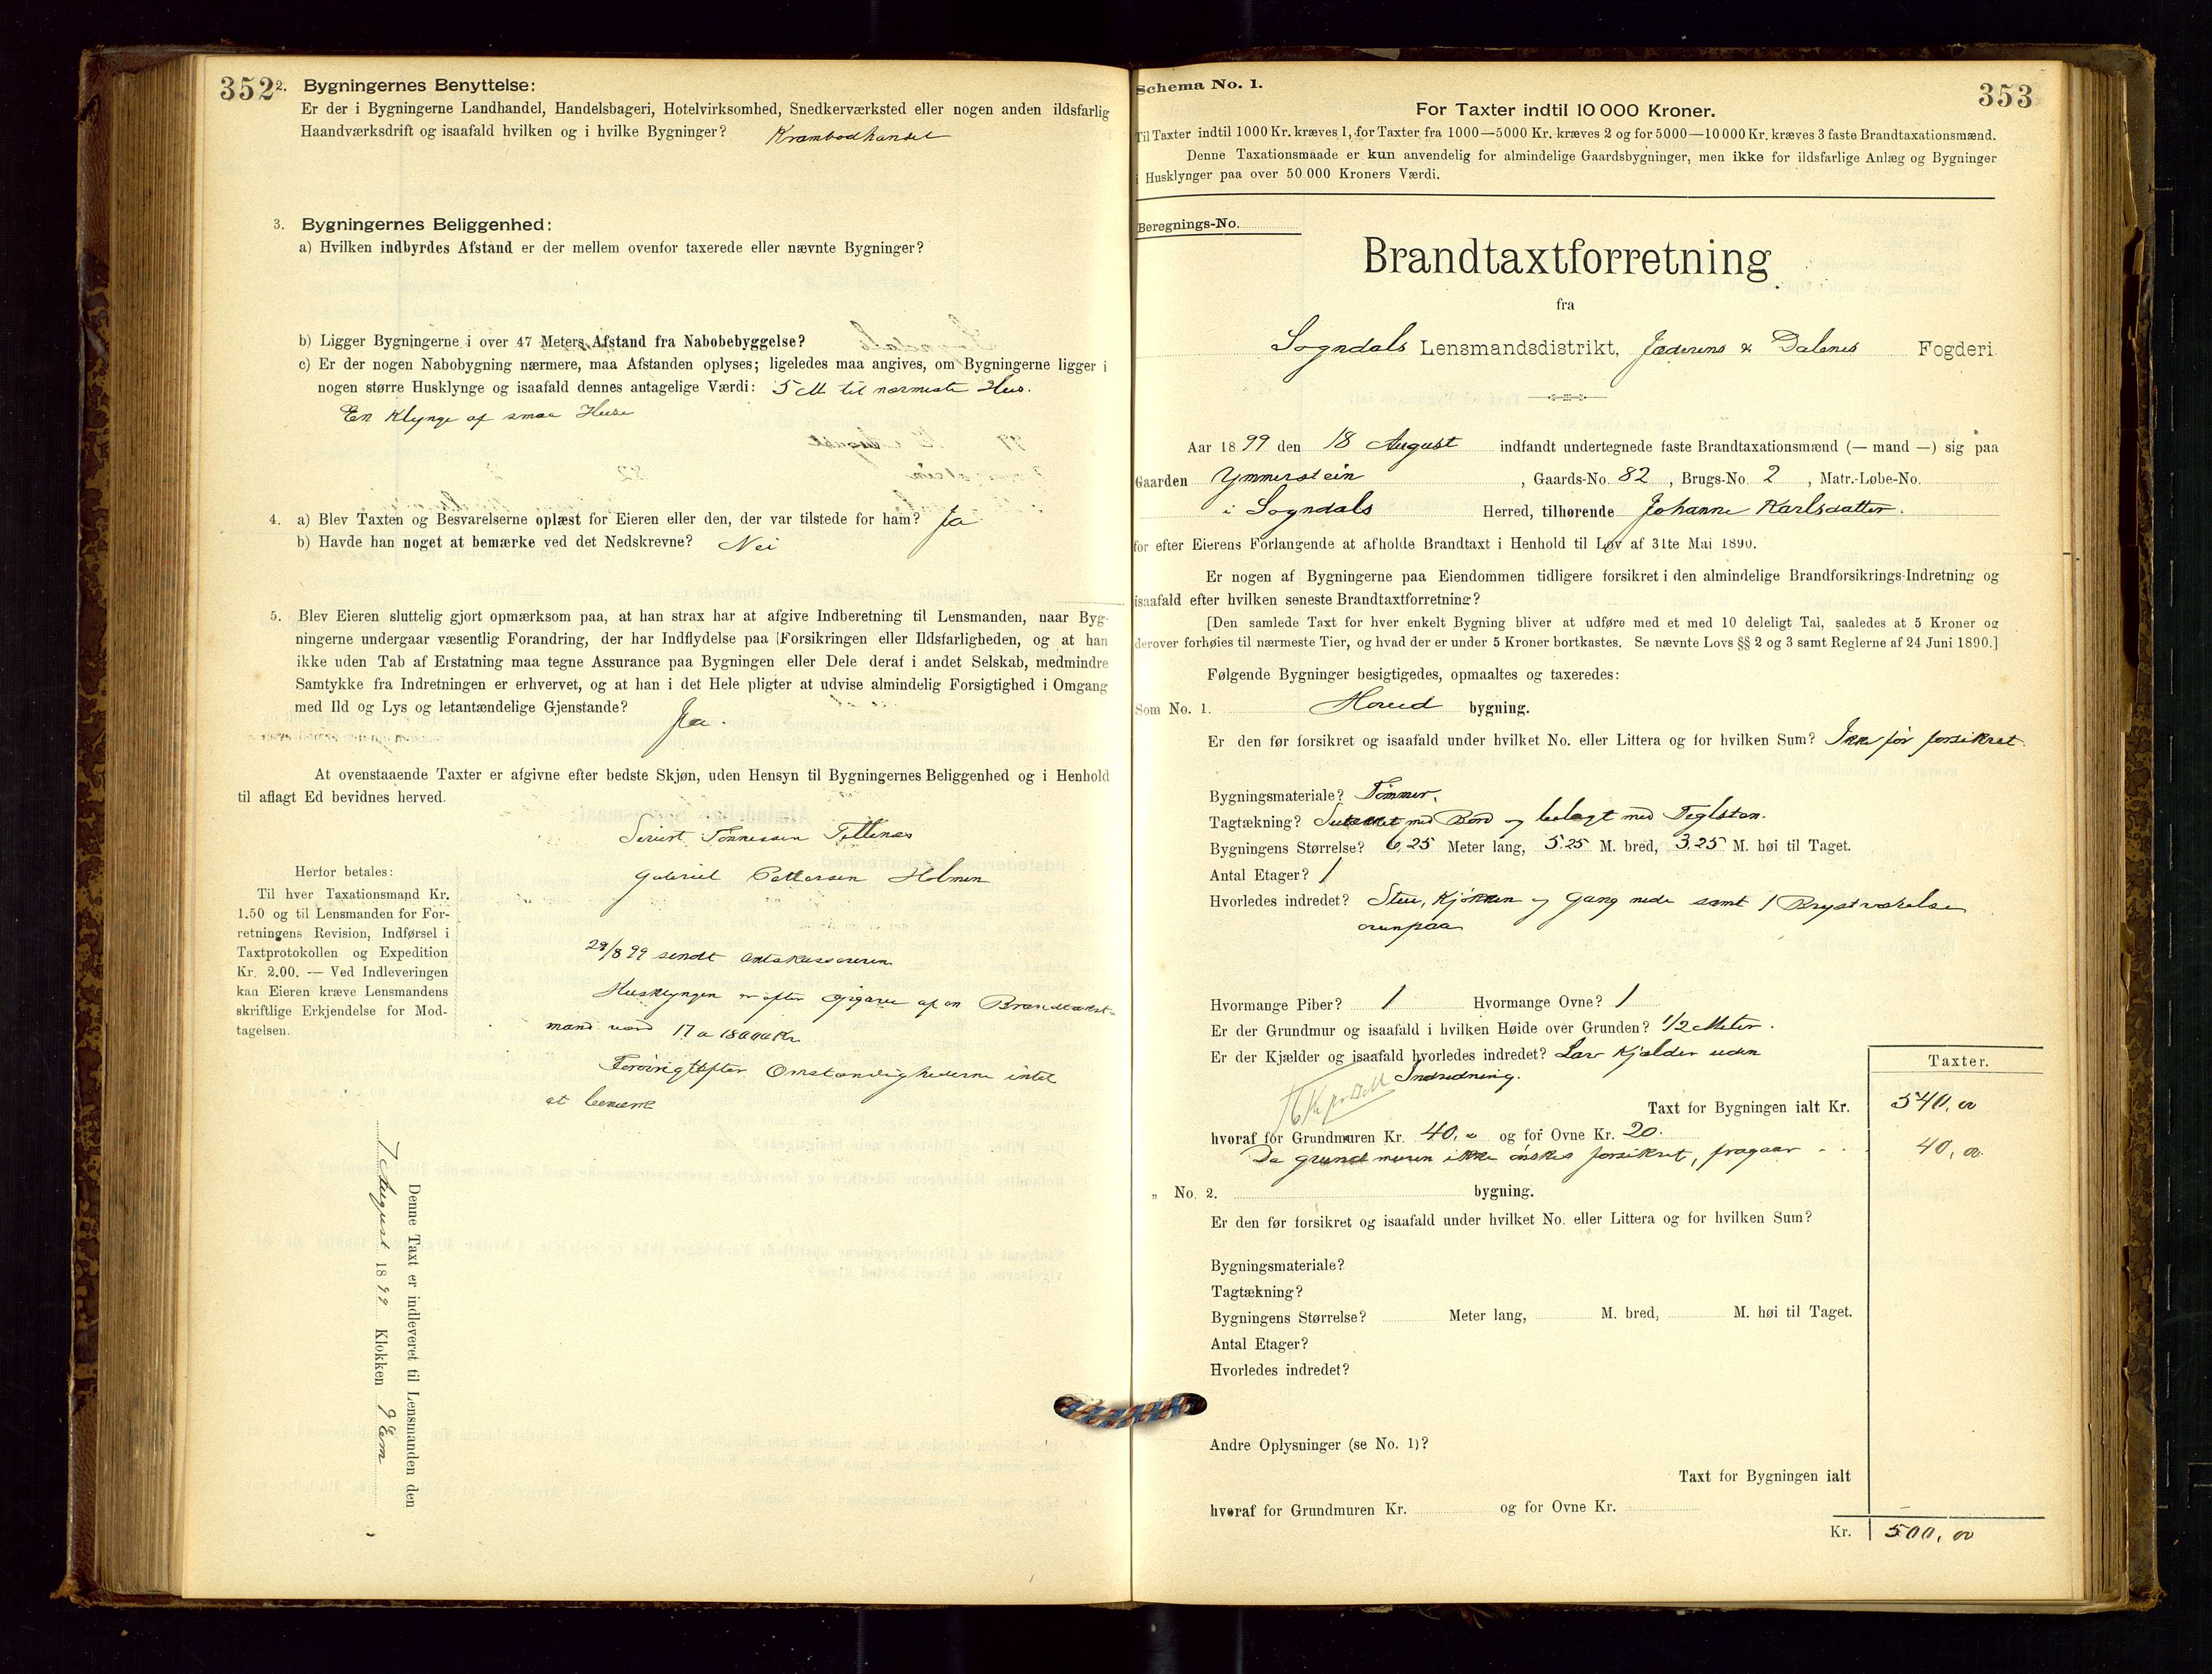 352
2. Bygningernes Benyttelse:
Er der i Bygningerne Landhandel, Handelsbageri, Hotelvirksomhed, Snedkerværksted eller nogen anden ildsfarlig
Haandværksdrift og isaafald hvilken og i hvilke Bygninger? Krambodhandel
3. Bygningernes Beliggenhed:
a) Hvilken indbyrdes Afstand er der mellem ovenfor taxerede eller nævnte Bygninger?
b) Ligger Bygningerne i over 47 Meters Afstand fra Nabobebyggelse?
c) Er der nogen Nabobygning nærmere, maa Afstanden oplyses; ligeledes maa angives, om Bygningerne ligger i
nogen større Husklynge og isaafald dennes antagelige Værdi: 5 M til nærmeste Hus.
En Klynge af smaa Huse
4. a) Blev Taxten og Besvarelserne oplæst for Eieren eller den, der var tilstede for ham? Ja
b) Havde han noget at bemærke ved det Nedskrevne? Nei
5. Blev Eieren sluttelig gjort opmærksom paa, at han strax har at afgive Indberetning til Lensmanden, naar Byg-
ningerne undergaar væsentlig Forandring, der har Indflydelse paa Forsikringen eller Ildsfarligheden, og at han
ikke uden Tab af Erstatning maa tegne Assurance paa Bygningen eller Dele deraf i andet Selskab, medmindre
Samtykke fra Indretningen er erhvervet, og at han i det Hele pligter at udvise almindelig Forsigtighed i Omgang
med Ild og Lys og letantændelige Gjenstande? Ja.
At ovenstaaende Taxter er afgivne efter bedste Skjøn, uden Hensyn til Bygningernes Beliggenhed og i Henhold
til aflagt Ed bevidnes herved.
Sivert Tønnessen
Gabriel Pettersen Holmen
Herfor betales:
Til hver Taxationsmand Kr.
1.50 og til Lensmanden for For-
retningens Revision, Indførsel i
Taxtprotokollen og Expedition
Kr. 2.00. — Ved Indleveringen
kan Eieren kræve Lensmandens
skriftlige Erkjendelse for Mod-
tagelsen.
29/8 99 sendt
Husklyngen er efter Opgave af en Brandtakst-
mand værd 17 a 18000 Kr.
Forøvrigt efter Omstændighederne intet
at bemærke
Denne Taxt er indleveret til Lensmanden den
7 August 1899 Klokken 9 Em
Schema No. 1.
353
For Taxter indtil 10 000 Kroner.
Til Taxter indtil 1000 Kr. kræves 1, for Taxter fra 1000—5000 Kr. kræves 2 og for 5000—10 000 Kr. kræves 3 faste Brandtaxationsmænd.
Denne Taxationsmaade er kun anvendelig for almindelige Gaardsbygninger, men ikke for ildsfarlige Anlæg og Bygninger
i Husklynger paa over 50 000 Kroners Værdi.
Beregnings-No.
Brandtaxtforretning
fra
Sogndals Lensmandsdistrikt, Jæderens & Dalenes Fogderi
Aar 1899 den 18 August indfandt undertegnede faste Brandtaxationsmænd (— mand —) sig paa
Gaarden Ymmerstein, Gaards-No. 82, Brugs-No. 2, Matr.-Løbe-No.
i Sogndals Herred, tilhørende Johanne Karlsdatter.
for efter Eierens Forlangende at afholde Brandtaxt i Henhold til Lov af 31te Mai 1890.
Er nogen af Bygningerne paa Eiendommen tidligere forsikret i den almindelige Brandforsikrings-Indretning og
isaafald efter hvilken seneste Brandtaxtforretning?
[Den samlede Taxt for hver enkelt Bygning bliver at udføre med et med 10 deleligt Tal, saaledes at 5 Kroner og
derover forhøies til nærmeste Tier, og hvad der er under 5 Kroner bortkastes. Se nævnte Lovs §§ 2 og 3 samt Reglerne af 24 Juni 1890.]
Følgende Bygninger besigtigedes, opmaaltes og taxeredes:
Som No. 1. Hoved bygning.
Er den før forsikret og isaafald under hvilket No. eller Littera og for hvilken Sum? Ikke før forsikret.
Bygningsmateriale? Tømmer.
Tagtækning? med Bord og belagt med Teglsten.
Bygningens Størrelse? 6,25 Meter lang, 5.25 M. bred, 3.25 M. høi til Taget.
Antal Etager? 1
Hvorledes indredet? Stue, Kjøkken og Gang nede samt 1 Brystværelse
ovenpaa
Hvormange Piber? 1 Hvormange Ovne? 1
Er der Grundmur og isaafald i hvilken Høide over Grunden? 1/2 Meter.
Er der Kjælder og isaafald hvorledes indredet? Lav Kjælder uden
Indredning.
Taxter.
Taxt for Bygningen ialt Kr. 540,00
hvoraf for Grundmuren Kr. 40,00 og for Ovne Kr. 20.
Da grundmuren ikke ønskes forsikret, fragaar 40,00
„ No. 2. bygning.
Er den før forsikret og isaafald under hvilket No. eller Littera og for hvilken Sum?
Bygningsmateriale?
Tagtækning?
Bygningens Størrelse? Meter lang, M. bred, M. høi til Taget.
Antal Etager?
Hvorledes indredet?
Andre Oplysninger (se No. 1)?
Taxt for Bygningen ialt
hvoraf for Grundmuren Kr. og for Ovne Kr.
Kr. 500,00